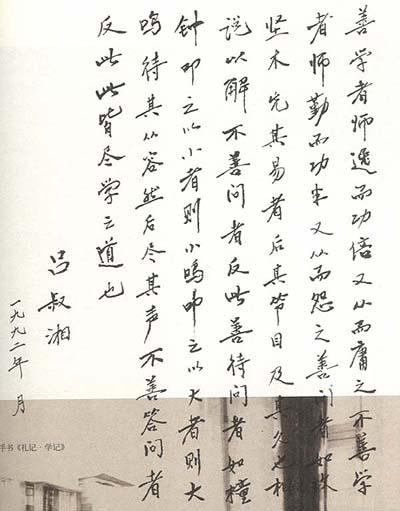 善学者师逸而功倍又从而庸之不善学
者师勤而功半又从而怨之善问者如攻
坚木先其易者后其节目及其久也相
说以解不善问者反此善待问者如撞
钟叩之以小者则小鸣叩之以大者则大
鸣待其从容然后尽其声不善答问者
反此此皆尽学之道也
吕叔湘
一九九二年 月
手书《礼记·学记》